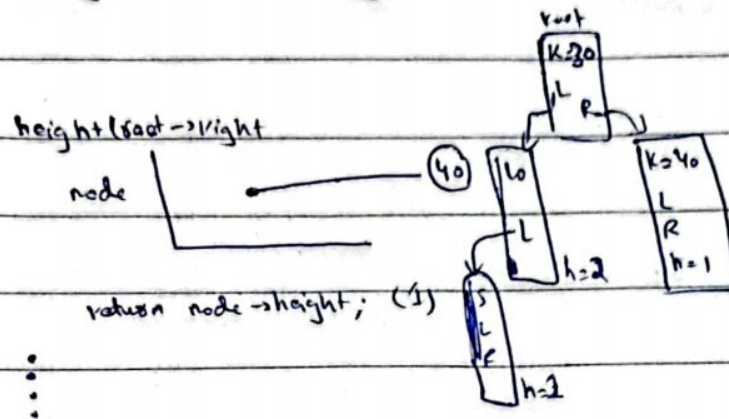 root
K=30
L
R
height(root->right
node
40
10
L
h=2
K=40
L
R
h=1
return node->height; (1)
5
L
R
h=1